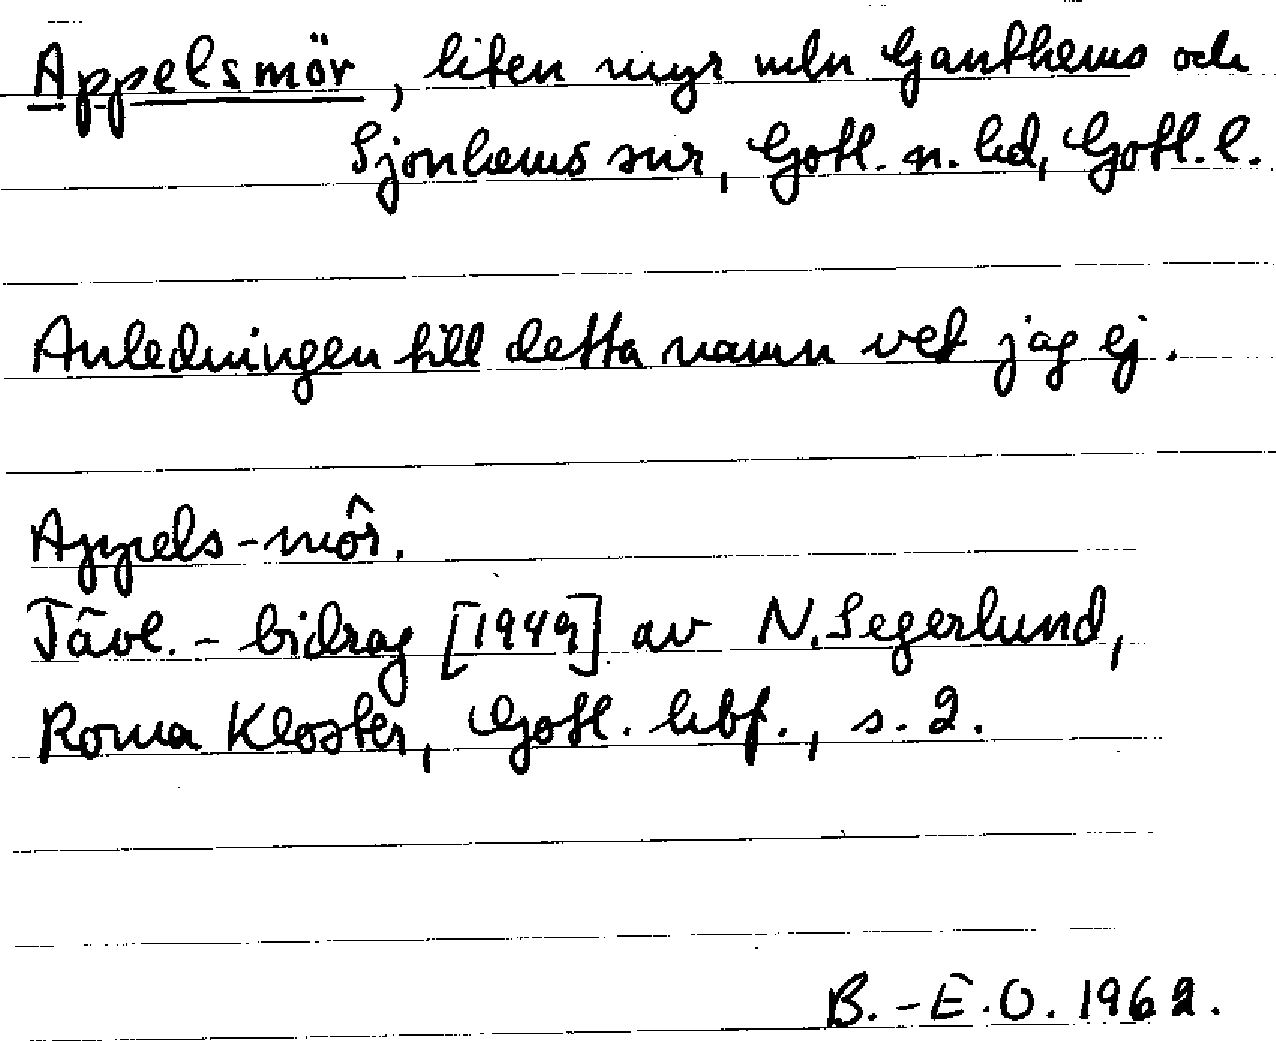 Appelsmör, liten myr mln Ganthems och
Sjonhems snr, Gotl. n. hd, Gotl. l.
Anledningen till detta namn vet jag ej.
Appels-môr.
Tävl.-bidrag [1949] av N. Segerlund,
Roma Kloster, Gotl. hbf., s. 2.
B.-E.O. 1962.